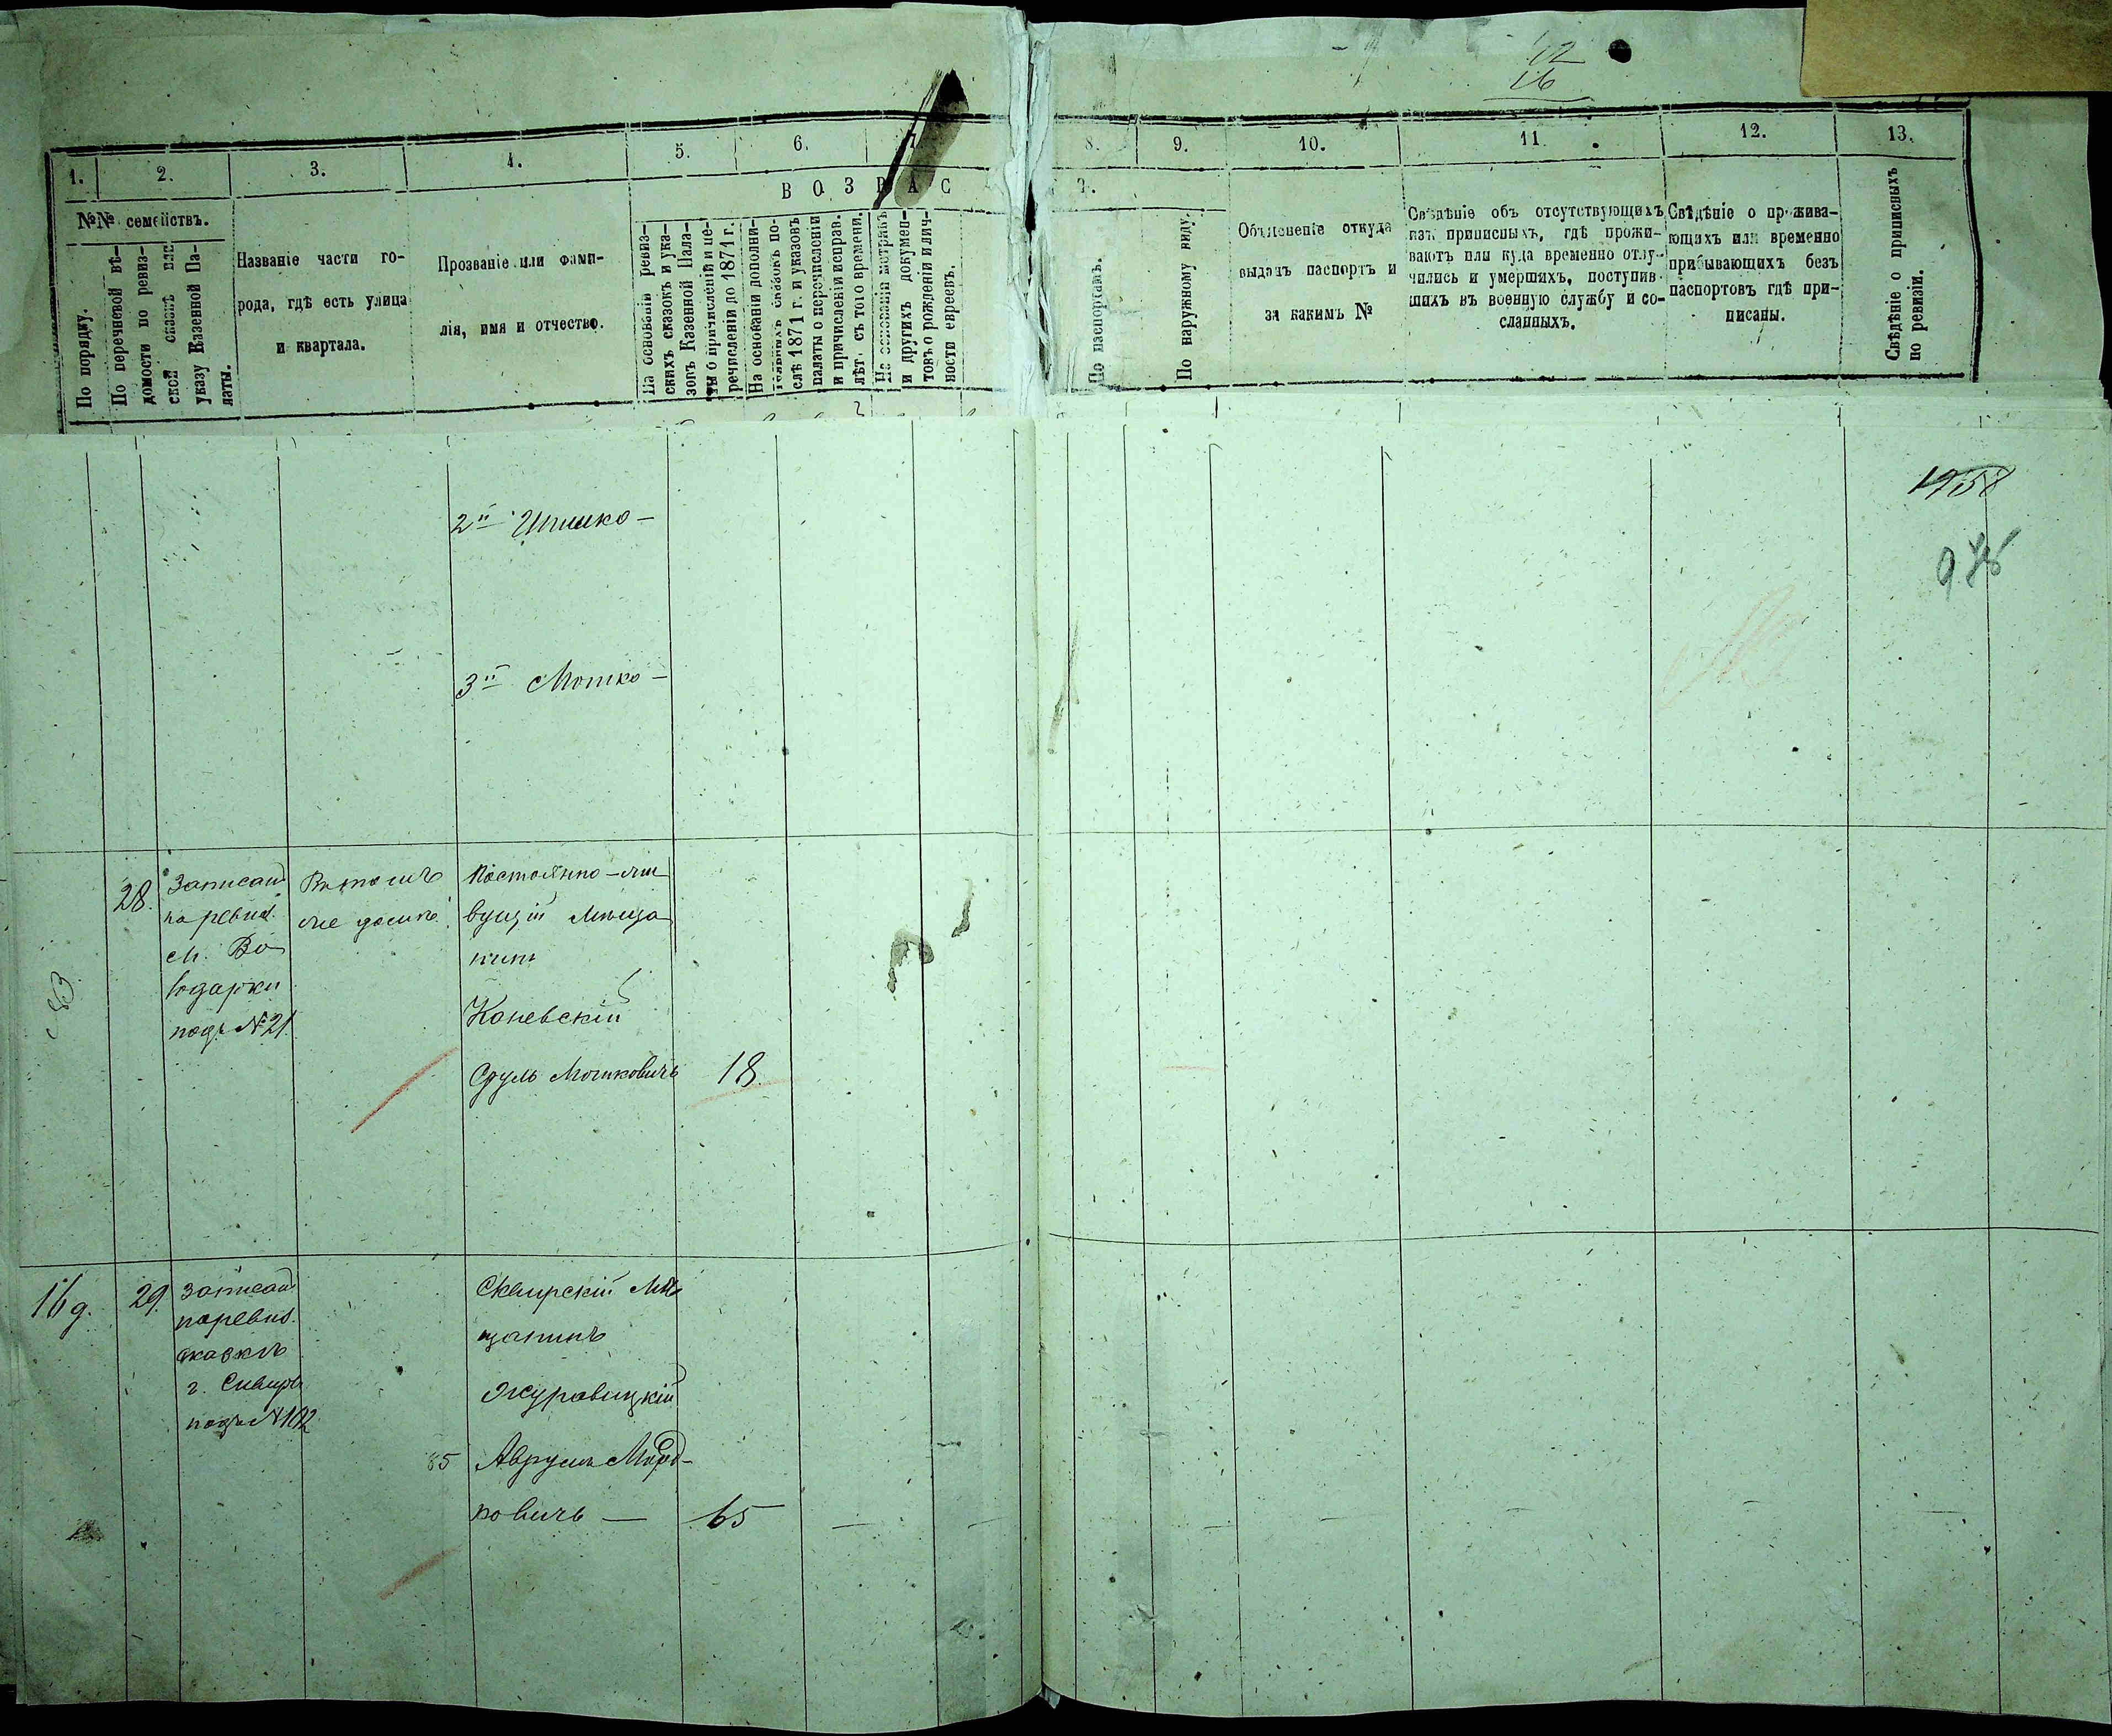 12
16
1.
2.
3.
4.
5.
6.
7
8.
9.
10.
11.
12.
13.
ВОЗРАС
Т.
№№ семействъ.
По порядку.
По перечневой вѣ-
домости по ревиз-
ской сказкѣ или
указу Казенной Па-
латы.
Названіе части го-
рода, гдѣ есть улица
и квартала.
Прозваніе или фами-
лія, имя и отчество.
На основаніи ревиз-
скихъ сказокъ и ука-
зовъ Казенной Пала-
ты о причисленіи и пе-
речисленіи до 1871 г.
На основаніи дополни-
тельныхъ сказокъ по-
слѣ 1871 г. и указовъ
палаты о перечисленіи
и причисленіи исправ.
лѣтъ съ того времени.
На основаніи метрикъ
и другихъ докумен-
товъ о рожденіи и лич-
ности евреевъ.
По паспортамъ.
По наружному виду.
Объясненіе откуда
выданъ паспортъ и
за какимъ №
Свѣдѣніе объ отсутствующихъ
изъ приписныхъ, гдѣ прожи-
ваютъ или куда временно отлу-
чились и умершихъ, поступив-
шихъ въ военную службу и со-
сланныхъ.
Свѣдѣніе о прожива-
ющихъ или временно
прибывающихъ безъ
паспортовъ гдѣ при-
писаны.
Свѣдѣніе о приписныхъ
по ревизіи.
2й Ицико —
3й Мошко —
28.
Записан
по ревиз.
м. Во
лодарки
подъ №21
же домѣ.
Постоянно-жи
вущій Мѣща
нинъ
Каневскій
Сруль Мошковичъ
18.
83
16 д.
29.
записан
по ревиз.
сказкѣ
г. Сквиры
подъ №102
Сквирскій Мѣ
щанинъ
Журавицкій
85
Аврумъ Морд-
ковичъ —
65